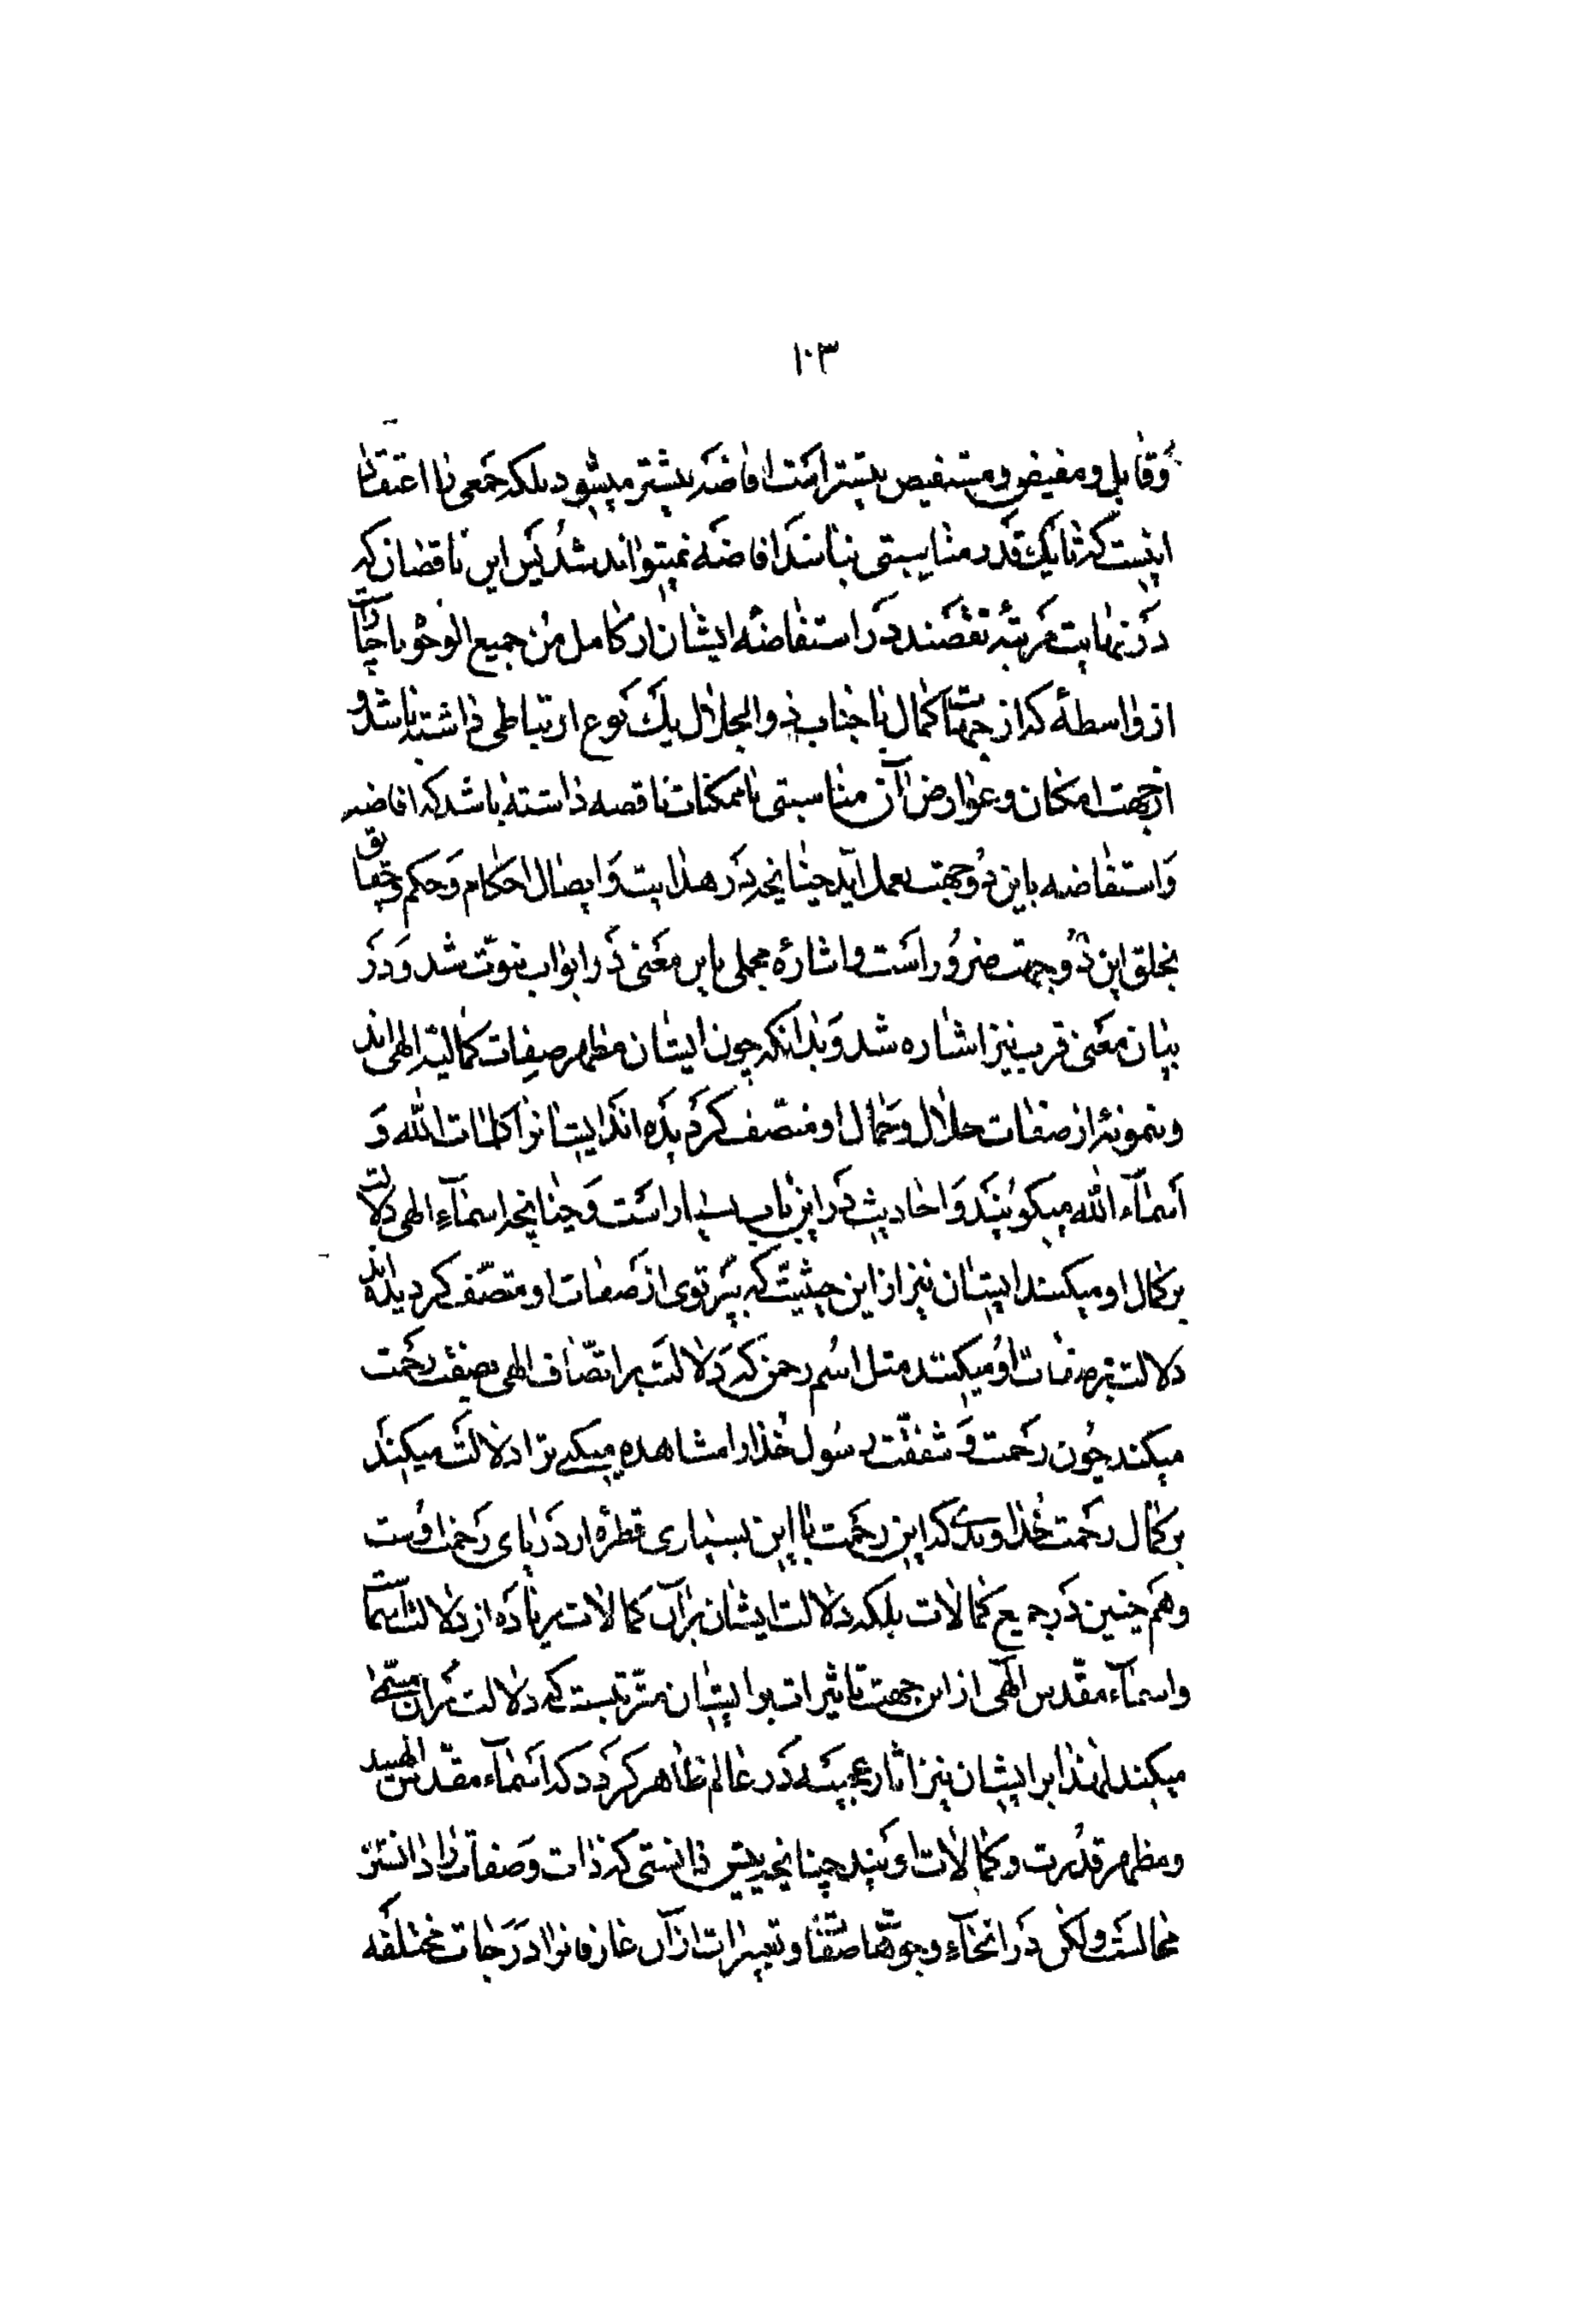 ١٠٣
وقابل و مفیض و مستفیض بیشتر است افاضه بیشتر میشود بلکه جمعی را اعتقاد
اینست که تا یک قدر مناسبتی نباشد افاضه نمیتواند شد پس این ناقصان که
در نهایت مرتبه نقصند در استفاضه ایشان از کامل من جمیع الوجوه ناچار است
از واسطهٔ که از جهات کمال با جناب ذو الجلال یک نوع ارتباطی داشته باشد و
از جهت امکان و عوارض آن مناسبتی با ممکنات ناقصه داشته باشد که افاضه
و استفاضه باین دو جهت بعمل آید چنانچه در هدایت و ایصال احکام و حکم و حقایق
بخلق این دو جهت ضرور است و اشارهٔ مجملی باین معنی در ابواب نبوّت شد و در
بیان معنی قرب نیز اشاره شد و بدانکه چون ایشان مظهر صفات کمالیه الهی اند
و بنمونهٔ از صفات جلال و جمال او متصّف گردیده اند ایشانرا کلمات الله و
أسمآء الله میگویند و احادیث در این باب بسیار است و چنانچه اسمآء الهی دلالت
بر کمال او میکنند ایشان نیز از این حیثیّت که بپرتوی از صفات او متصّف گردیده اند
دلالت بر صفات او میکنند مثل اسم رحمن که دلالت بر اتّصاف الهی بصفت رحمت
میکند چون رحمت و شفقّت رسول خدا را مشاهده میکنی ترا دلالت میکند
بر کمال رحمت خداوندی که این رحمت با این بسیاری قطرهٔ از دریای رحمت اوست
و هم چنین در جمیع کمالات بلکه دلالت ایشان بر آن کمالات زیاده از دلالت اسما است
و اسمآء مقدّس الهی از این جهت تاثیرات بر ایشان مترتبست که دلالت بر آن مسمّی
میکنند لهذا بر ایشان نیز اثار عجیبه در عالم ظاهر گردد که اسمآء مقدّس الهیند
و مظهر قدرت و کمالات اویند چنانچه پیش دانستی که ذات و صفات را دانستن
محالست ولکن در انحآء وجوه صفات و تعبیرات از آن عارفانرا درجات مختلفه